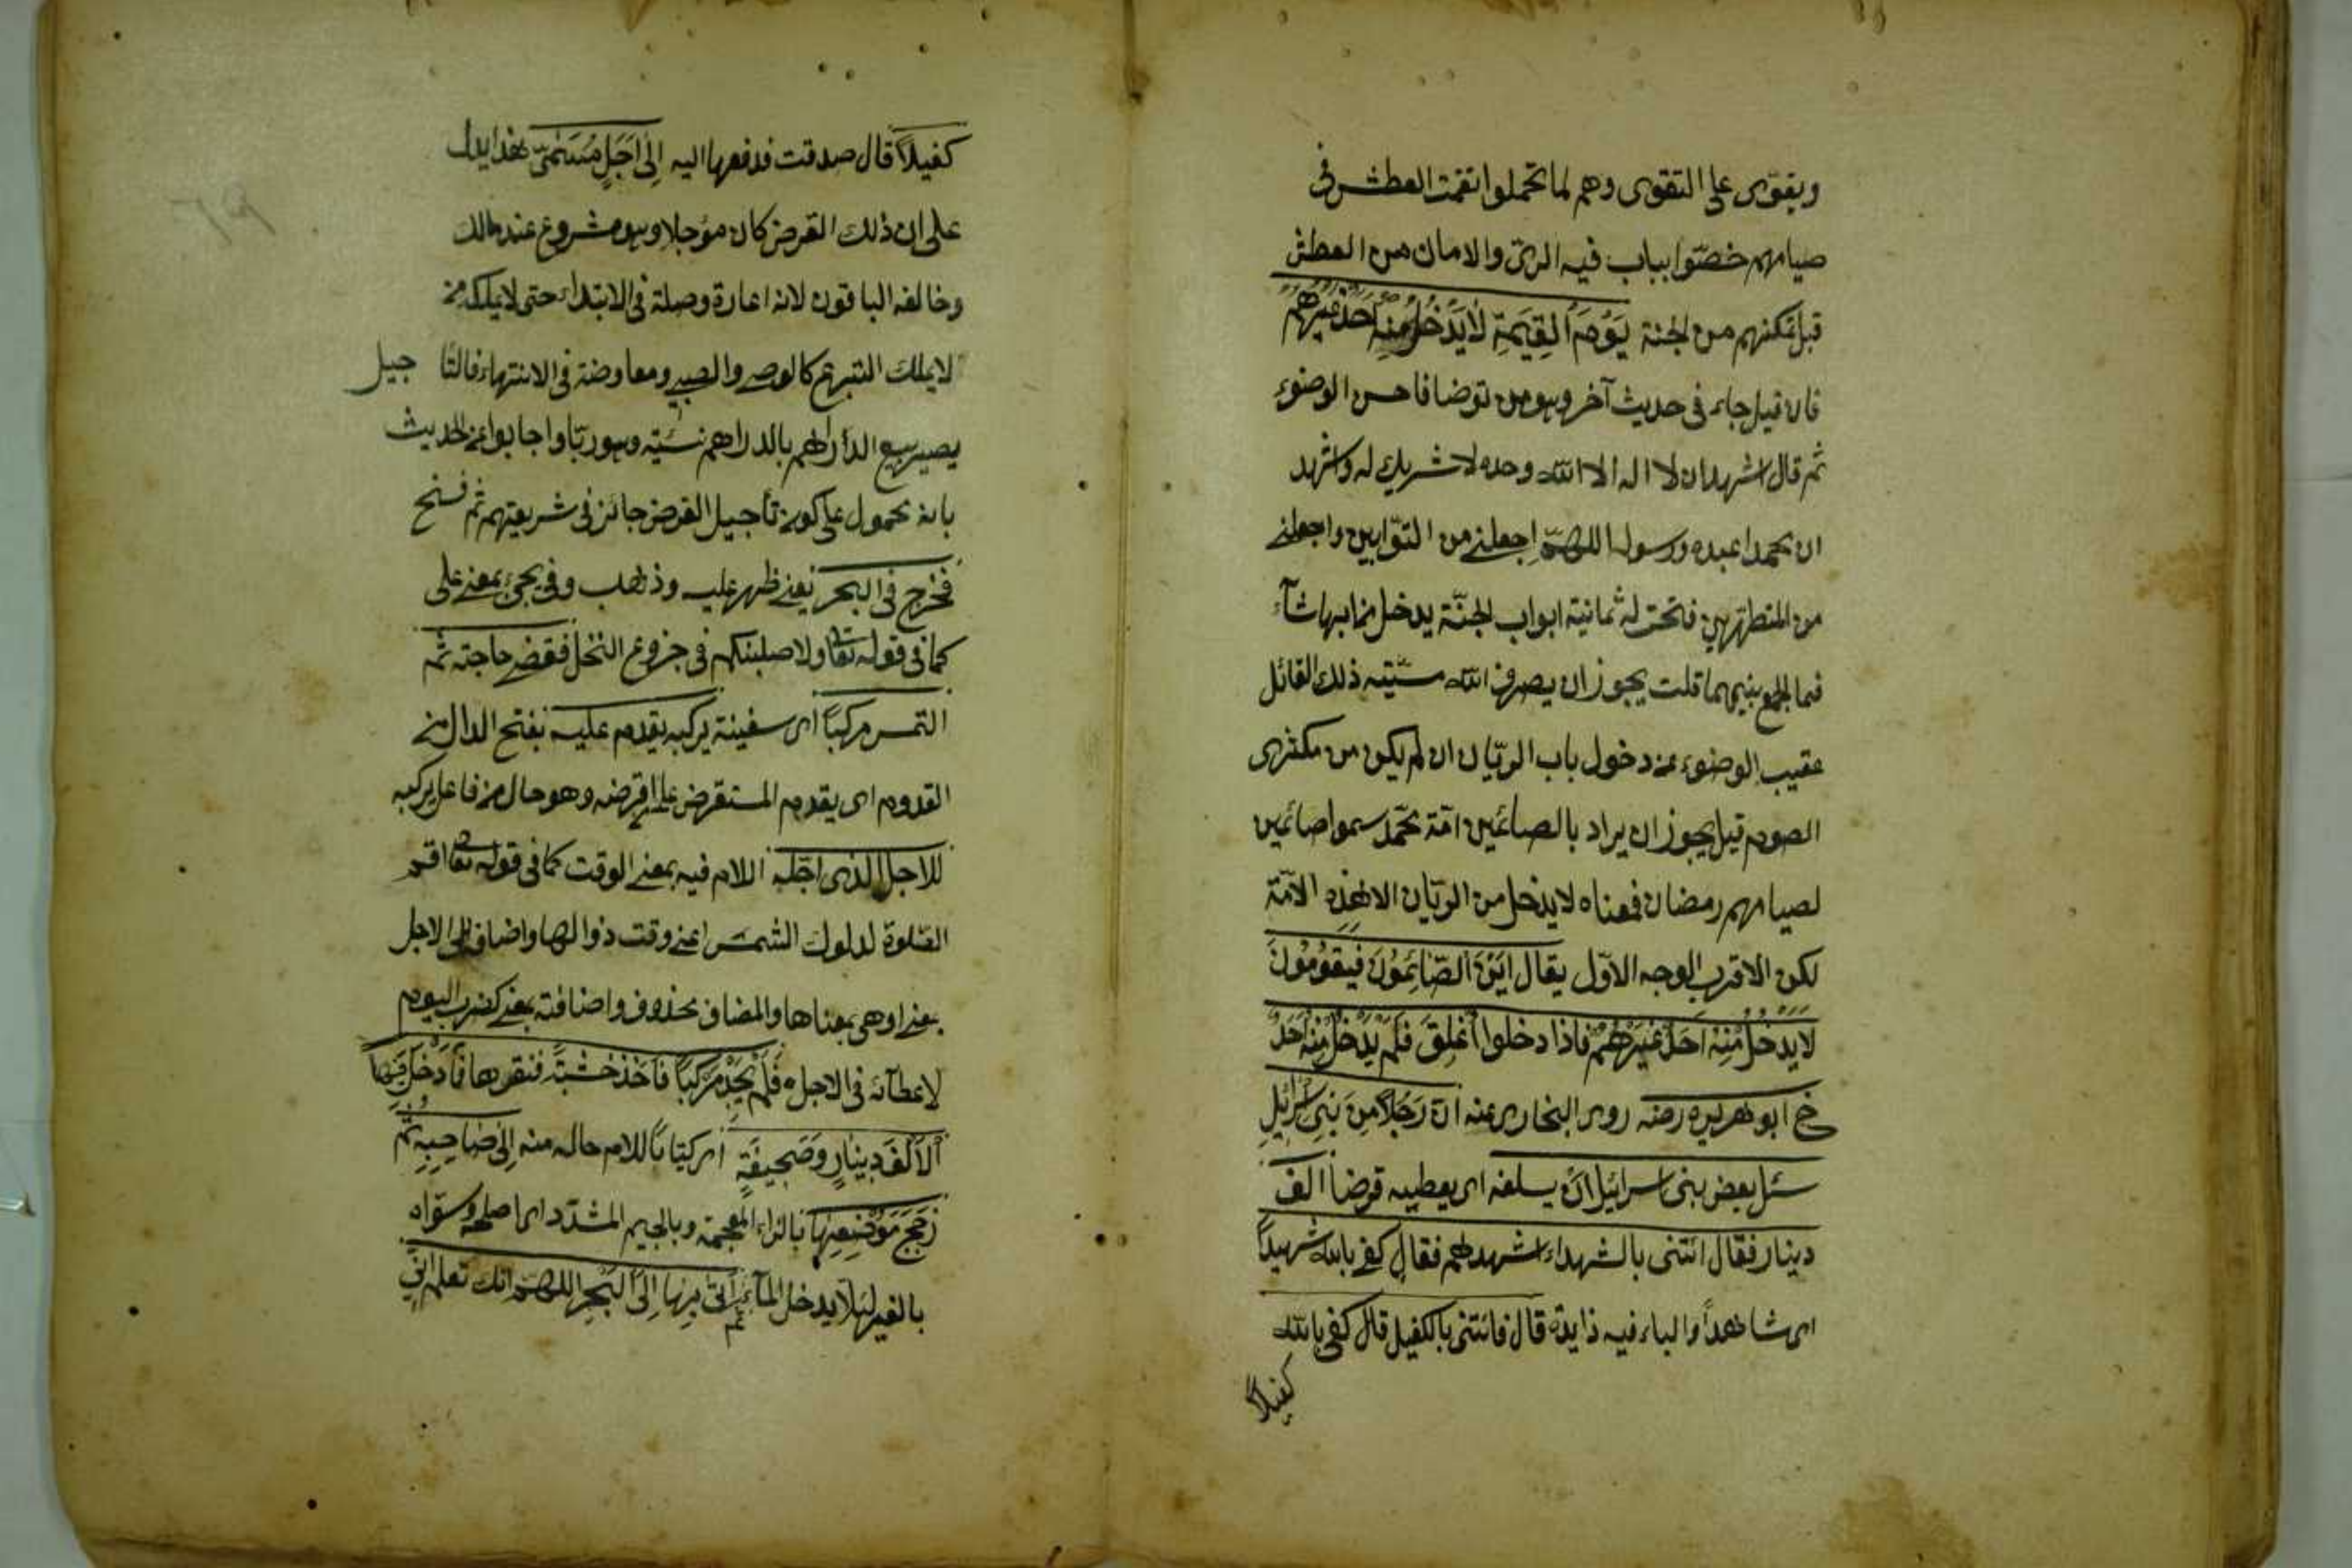 ويقوى على التقوى وهم لما تحملوا العطش فى
صيامهم خصّوا بباب فيه الرىّ والامان من العطش
قبل تمكنهم من الجنة يَوْمَ الْقِيٰمَةِ لَا يَدْخُلُ مِنْهُ اَحَدٌ غَيْرُهُمْ
فان قيل جاء فى حديث آخر وهو من توضا فاحسن الوضوء
ثم قال اشهد ان لا اله الا الله وحده لا شريك له واشهد
ان محمدا عبده ورسوله اللهمّ اجعلنى من التوّابين واجعلنى
من المتطهّرين فتحت له ثمانية ابواب الجنّة يدخل من ايها شآء
فما الجمع بينهما قلت يجوز ان يصرف الله مشيّته ذلك القائل
عقيب الوضوء عن دخول باب الريّان ان لم يكن من مكثرى
الصوم قيل يجوز ان يراد بالصائمين امّة محمّد سموا صائمين
لصيامهم رمضان فمعناه لا يدخل من الريّان الا هذه الامّة
لكن الاقرب الوجه الاوّل يقال اَيْنَ الصَّائِمُوْنَ فَيَقُوْمُوْنَ
لَا يَدْخُلُ مِنْهُ اَحَدٌ غَيْرُهُمْ فاذا دخلوا اُغْلِقَ فَلَمْ يَدْخُلْ مِنْهُ اَحَدٌ
خ ابو هريره رضه روى البخارى عنه انّ رَجُلاً مِنْ بَنِى اِسْرَائِيْلِ
سئل بعض بنى اسرائيل ان يسلفه اى يعطيه قرضاً الف
دينار فقال ائتنى بالشهداء اشهدهم فقال كفى بالله شهيداً
اى شاهداً والباء فيه زايدة قال فائتنى بالكفيل قال كفى بالله
كفيلاً
كفيلاً قال صدقت فدفعها اليه اِلٰى اَجَلٍ مُسَمًّى هذا يدل
على ان ذلك القرض كان مؤجلا وهو مشروع عند مالك
وخالفه الباقون لانه اعارة وصلة فى الابتداء حتى لا يملكه من
لا يملك التبرع كالوصى والصبى ومعاوضة فى الانتهاء فالتا جيل
يصير بيع الدراهم بالدراهم نسئيه وهو ربا واجابوا عن الحديث
بانه محمول على كون تأجيل القرض جائز فى شريعتهم ثم فسخ
فخرج فى البحر يعنى ظهر عليه وذهب وفى يجئ بمعنى على
كما فى قوله تعا ولاصلبنكم فى جزوع النخل فقضى حاجته ثم
التمس مركباً اى سفينة يركبه يقدم عليه بفتح الدال من
القدوم اى يقدم المستقرض على وهو حال من فاعل يركبه
للاجل الذى اجّله اللام فيه بمعنى الوقت كما فى قوله تعا اقم
الصّلوة لدلوك الشمس اعنى وقت ذوالها واضاف الى الاجل
بمعنى او هى بمعناها والمضاف محذوف واضافته بمعنى كضرب اليوم
لاعطآئه فى الاجل فَلَمْ يَجِدْ مَرْكَباً فَاَخَذَ خَشَبَةً فنقرها فَاَدْخَلَ فِيْهَا
اَلْاَلْفَ دِيْنَارٍ وَصَحِيْفَةٍ اى كتابا للام حاله منه اِلٰى صَاحِبِهِ ثُمَّ
زَجَّجَ مَوْضِعَهَا بالزاء المعجمة وبالجيم المشدّد اى اصلحه وسوّاه
بالقير لئلا يدخل المآء ثم اَتٰى بِهَا اِلَى الْبَحْرِ اللهمّ انك تعلم انّى